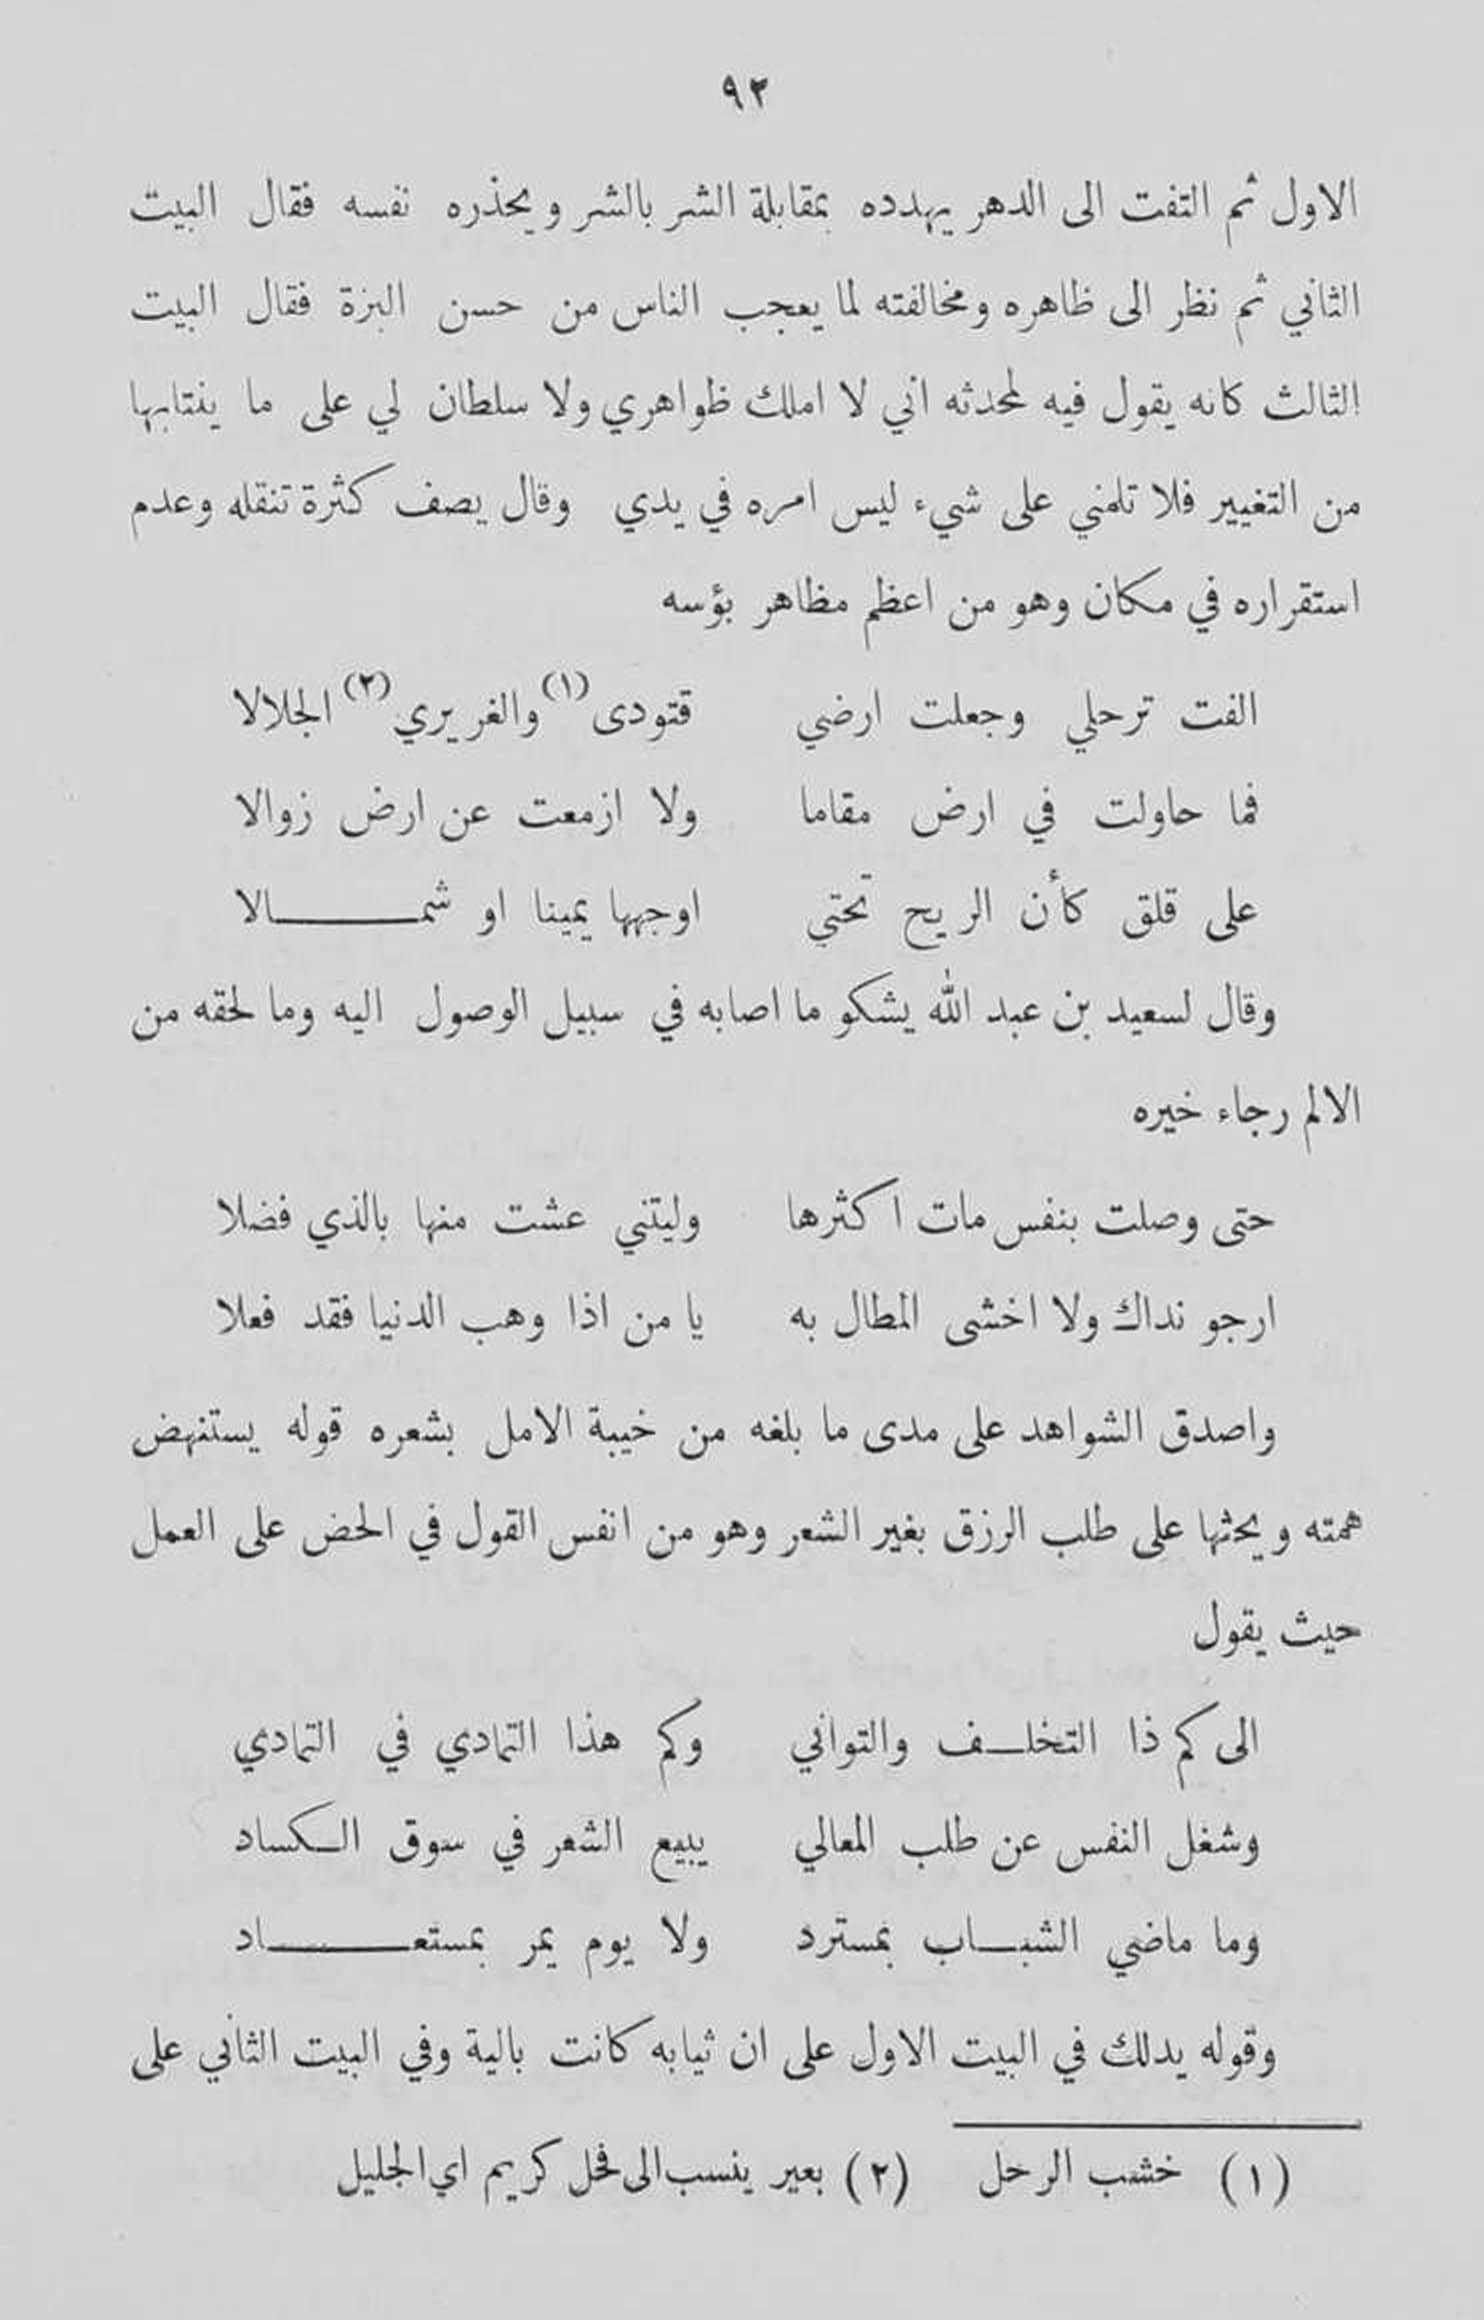 ٩٢
الاول ثم التفت الى الدهر يهدده بمقابلة الشر بالشر ويحذره نفسه فقال البيت
الثاني ثم نظر الى ظاهره ومخالفته لما يعجب الناس من حسن البزة فقال البيت
الثالث كانه يقول فيه لمحدثه اني لا املك ظواهري ولا سلطان لي على ما ينتابها
من التغيير فلا تلمني على شيء ليس امره في يدي وقال يصف كثرة تنقله وعدم
استقراره في مكان وهو من اعظم مظاهر بؤسه
الفت ترحلي وجعلت ارضي قتودى (١) والغريري (٢) الجلالا
فما حاولت في ارض مقاما ولا ازمعت عن ارض زوالا
على قلق كأن الريح تحتي اوجهها يمينا او شمـــالا
وقال لسعيد بن عبد الله يشكو ما اصابه في سبيل الوصول اليه وما لحقه من
الالم رجاء خيره
حتى وصلت بنفس مات اكثرها وليتني عشت منها بالذي فضلا
ارجو نداك ولا اخشى المطال به يا من اذا وهب الدنيا فقد فعلا
واصدق الشواهد على مدى ما بلغه من خيبة الامل بشعره قوله يستنهض
همته ويحثها على طلب الرزق بغير الشعر وهو من انفس القول في الحض على العمل
حيث يقول
الى كم ذا التخلـف والتواني وكم هذا التمادي في التمادي
وشغل النفس عن طلب المعالي يبيع الشعر في سوق الـكساد
وما ماضي الشبـاب بمسترد ولا يوم يمر بمستعـــاد
وقوله يدلك في البيت الاول على ان ثيابه كانت بالية وفي البيت الثاني على
(١) خشب الرحل (٢) بعير ينسب الى فحل كريم اي الجليل